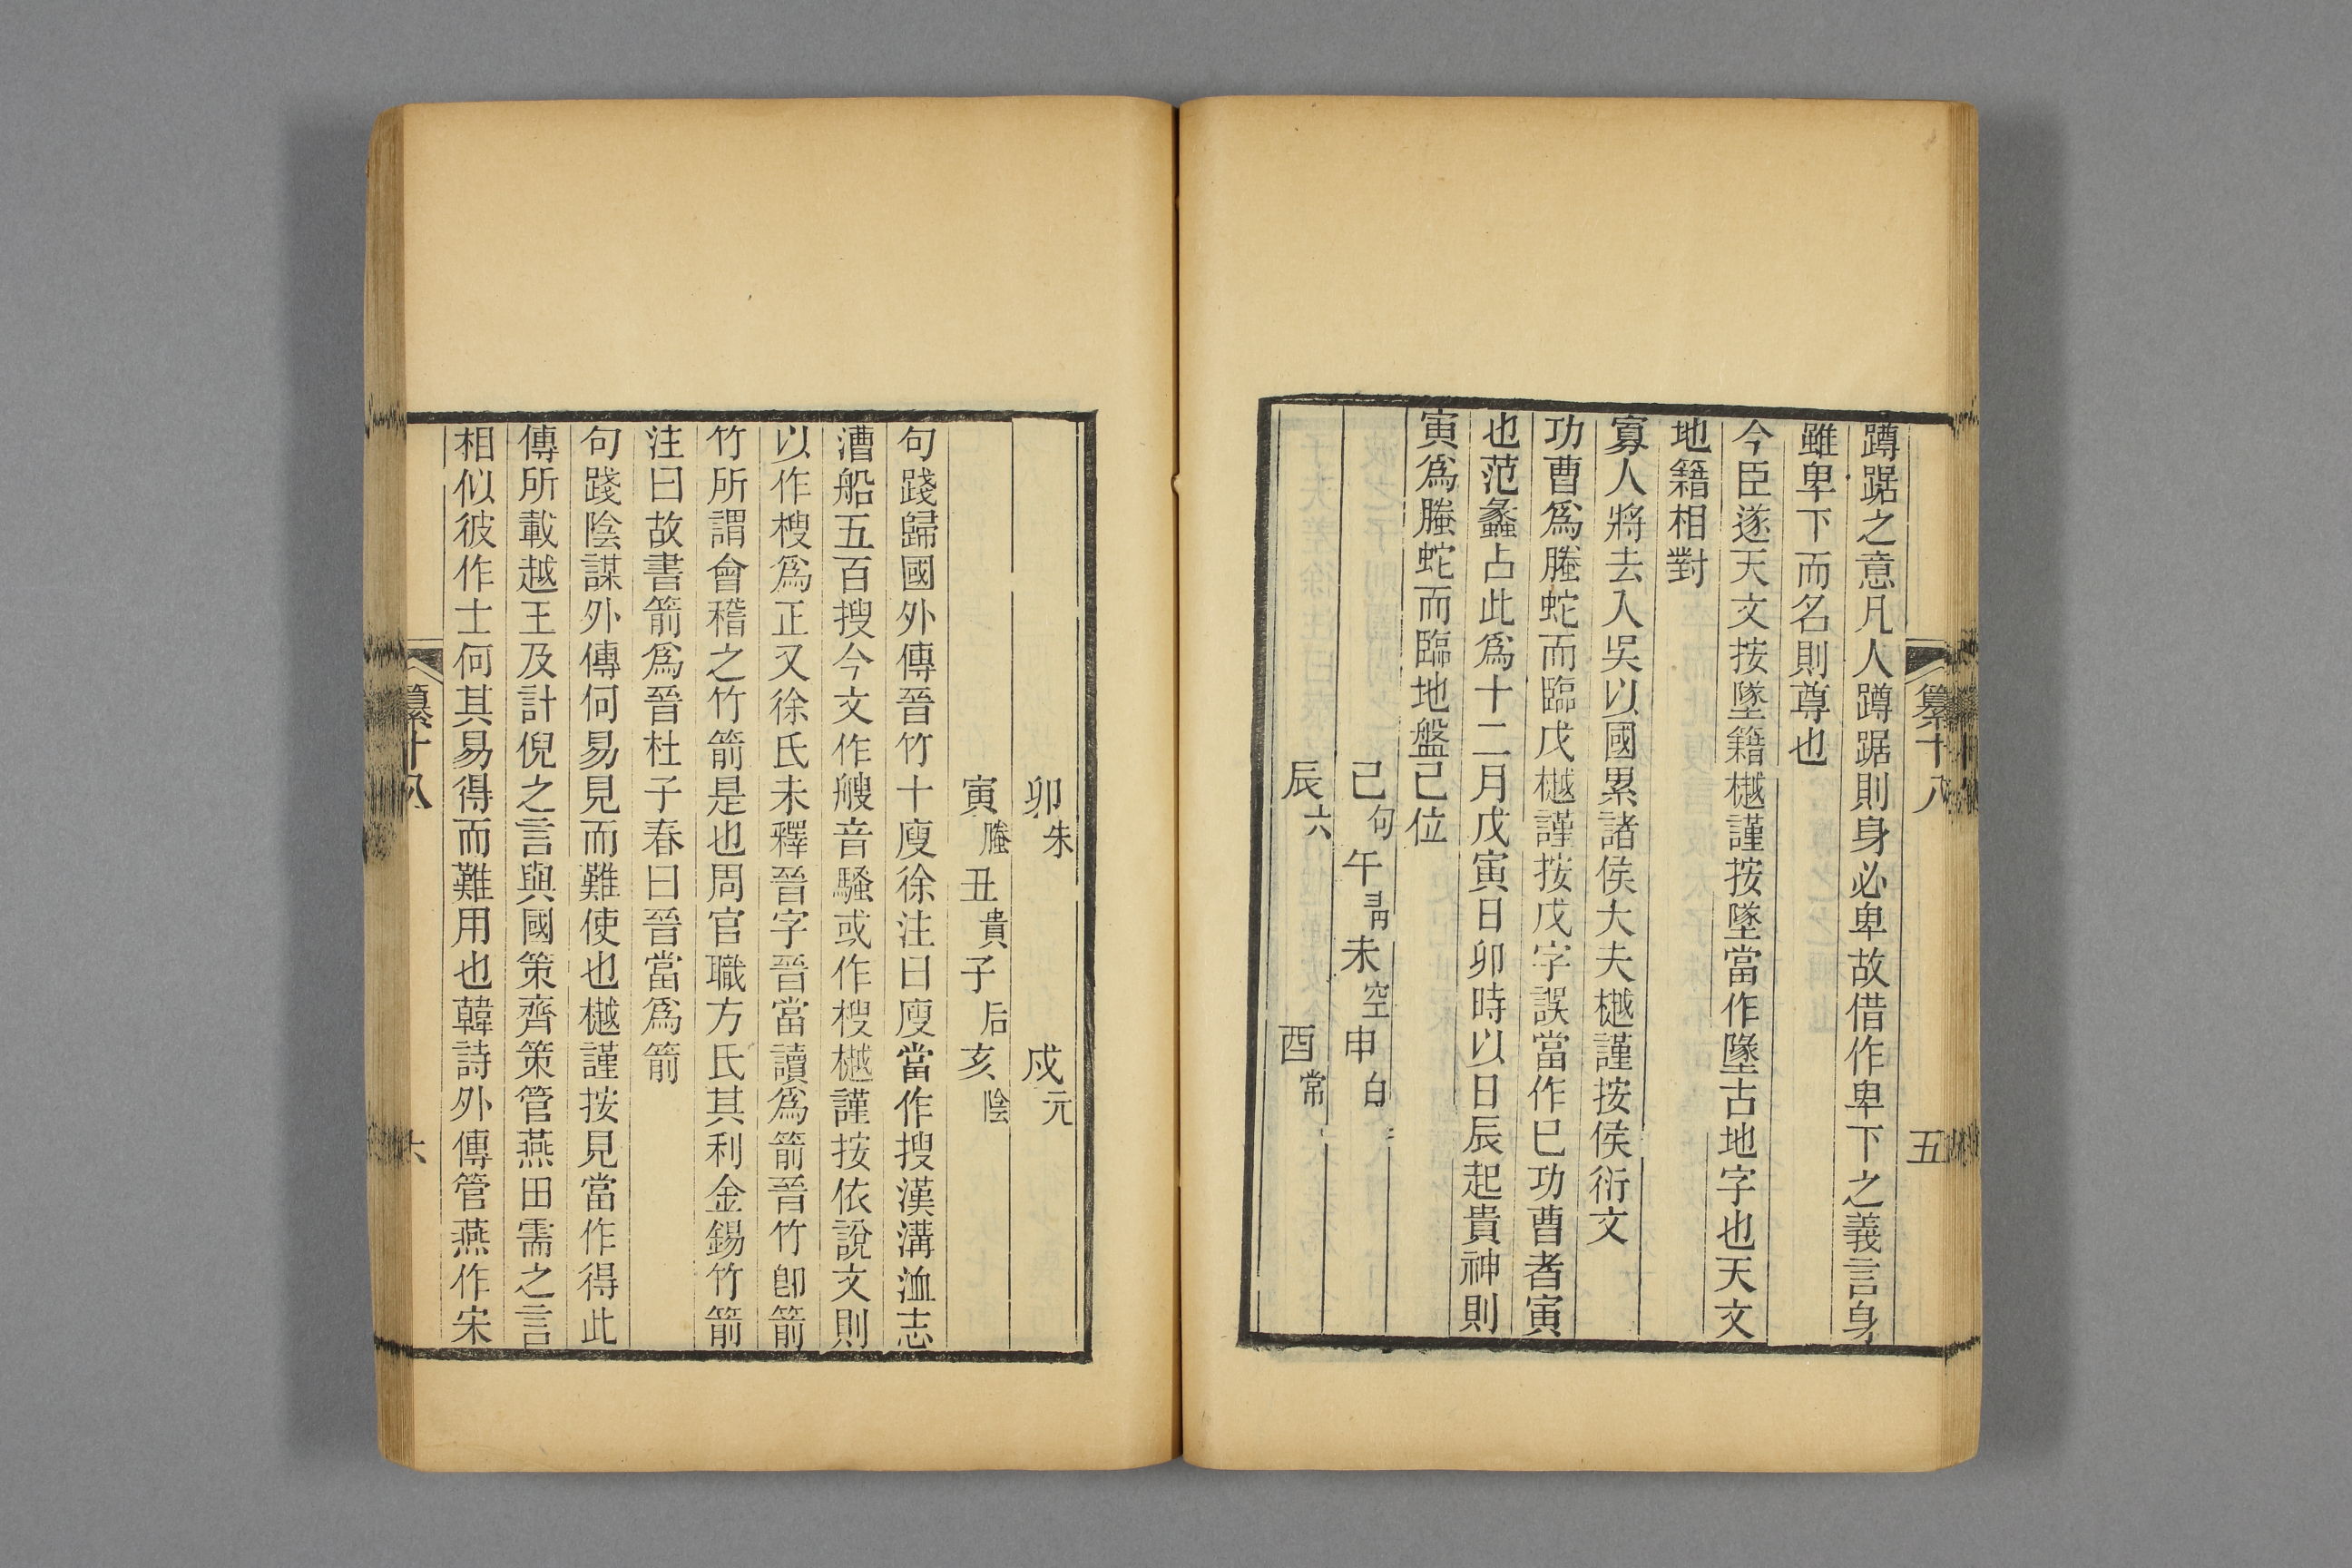 蹲踞之意凡人蹲踞則身必卑故借作卑下之義言身
雖卑下而名則尊也
今臣遂天文按墜籍樾謹按墜當作墬古地字也天文
地籍相對
寡人將去入吳以國累諸侯大夫樾謹按侯衍文
功曹爲螣蛇而臨戊樾謹按戊字誤當作巳功曹者寅
也范蠡占此爲十二月戊寅日卯時以日辰起貴神則
寅爲螣蛇而臨地盤己位
己句午靑未空申白
辰六 酉常
纂十八 五
卯朱 戍元
寅螣丑貴子后亥陰
句踐歸國外傳晉竹十廋徐注曰廋當作搜漢溝洫志
漕船五百搜今文作艘音騷或作梭樾謹按依說文則
以作梭爲正又徐氏未釋晉字晉當讀爲箭晉竹卽箭
竹所謂會稽之竹箭是也周官職方氏其利金錫竹箭
注曰故書箭爲晉杜子春曰晉當爲箭
句踐陰謀外傳何易見而難使也樾謹按見當作得此
傳所載越王及計倪之言與國策齊策管燕田需之言
相似彼作士何其易得而難用也韓詩外傳管燕作宋
纂十八 六